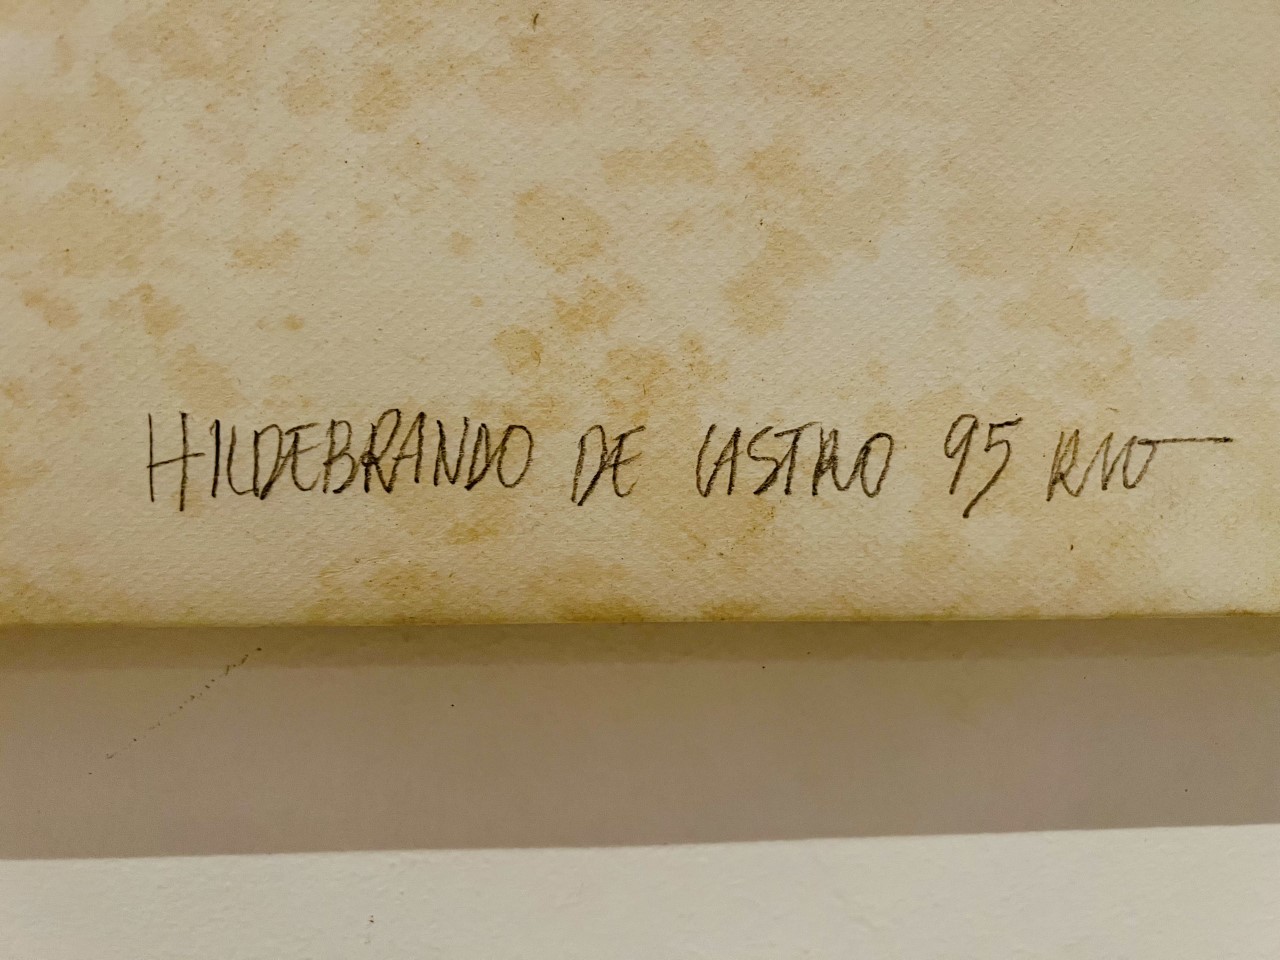 HILDEBRANDO DE CASTRO 95 RIO